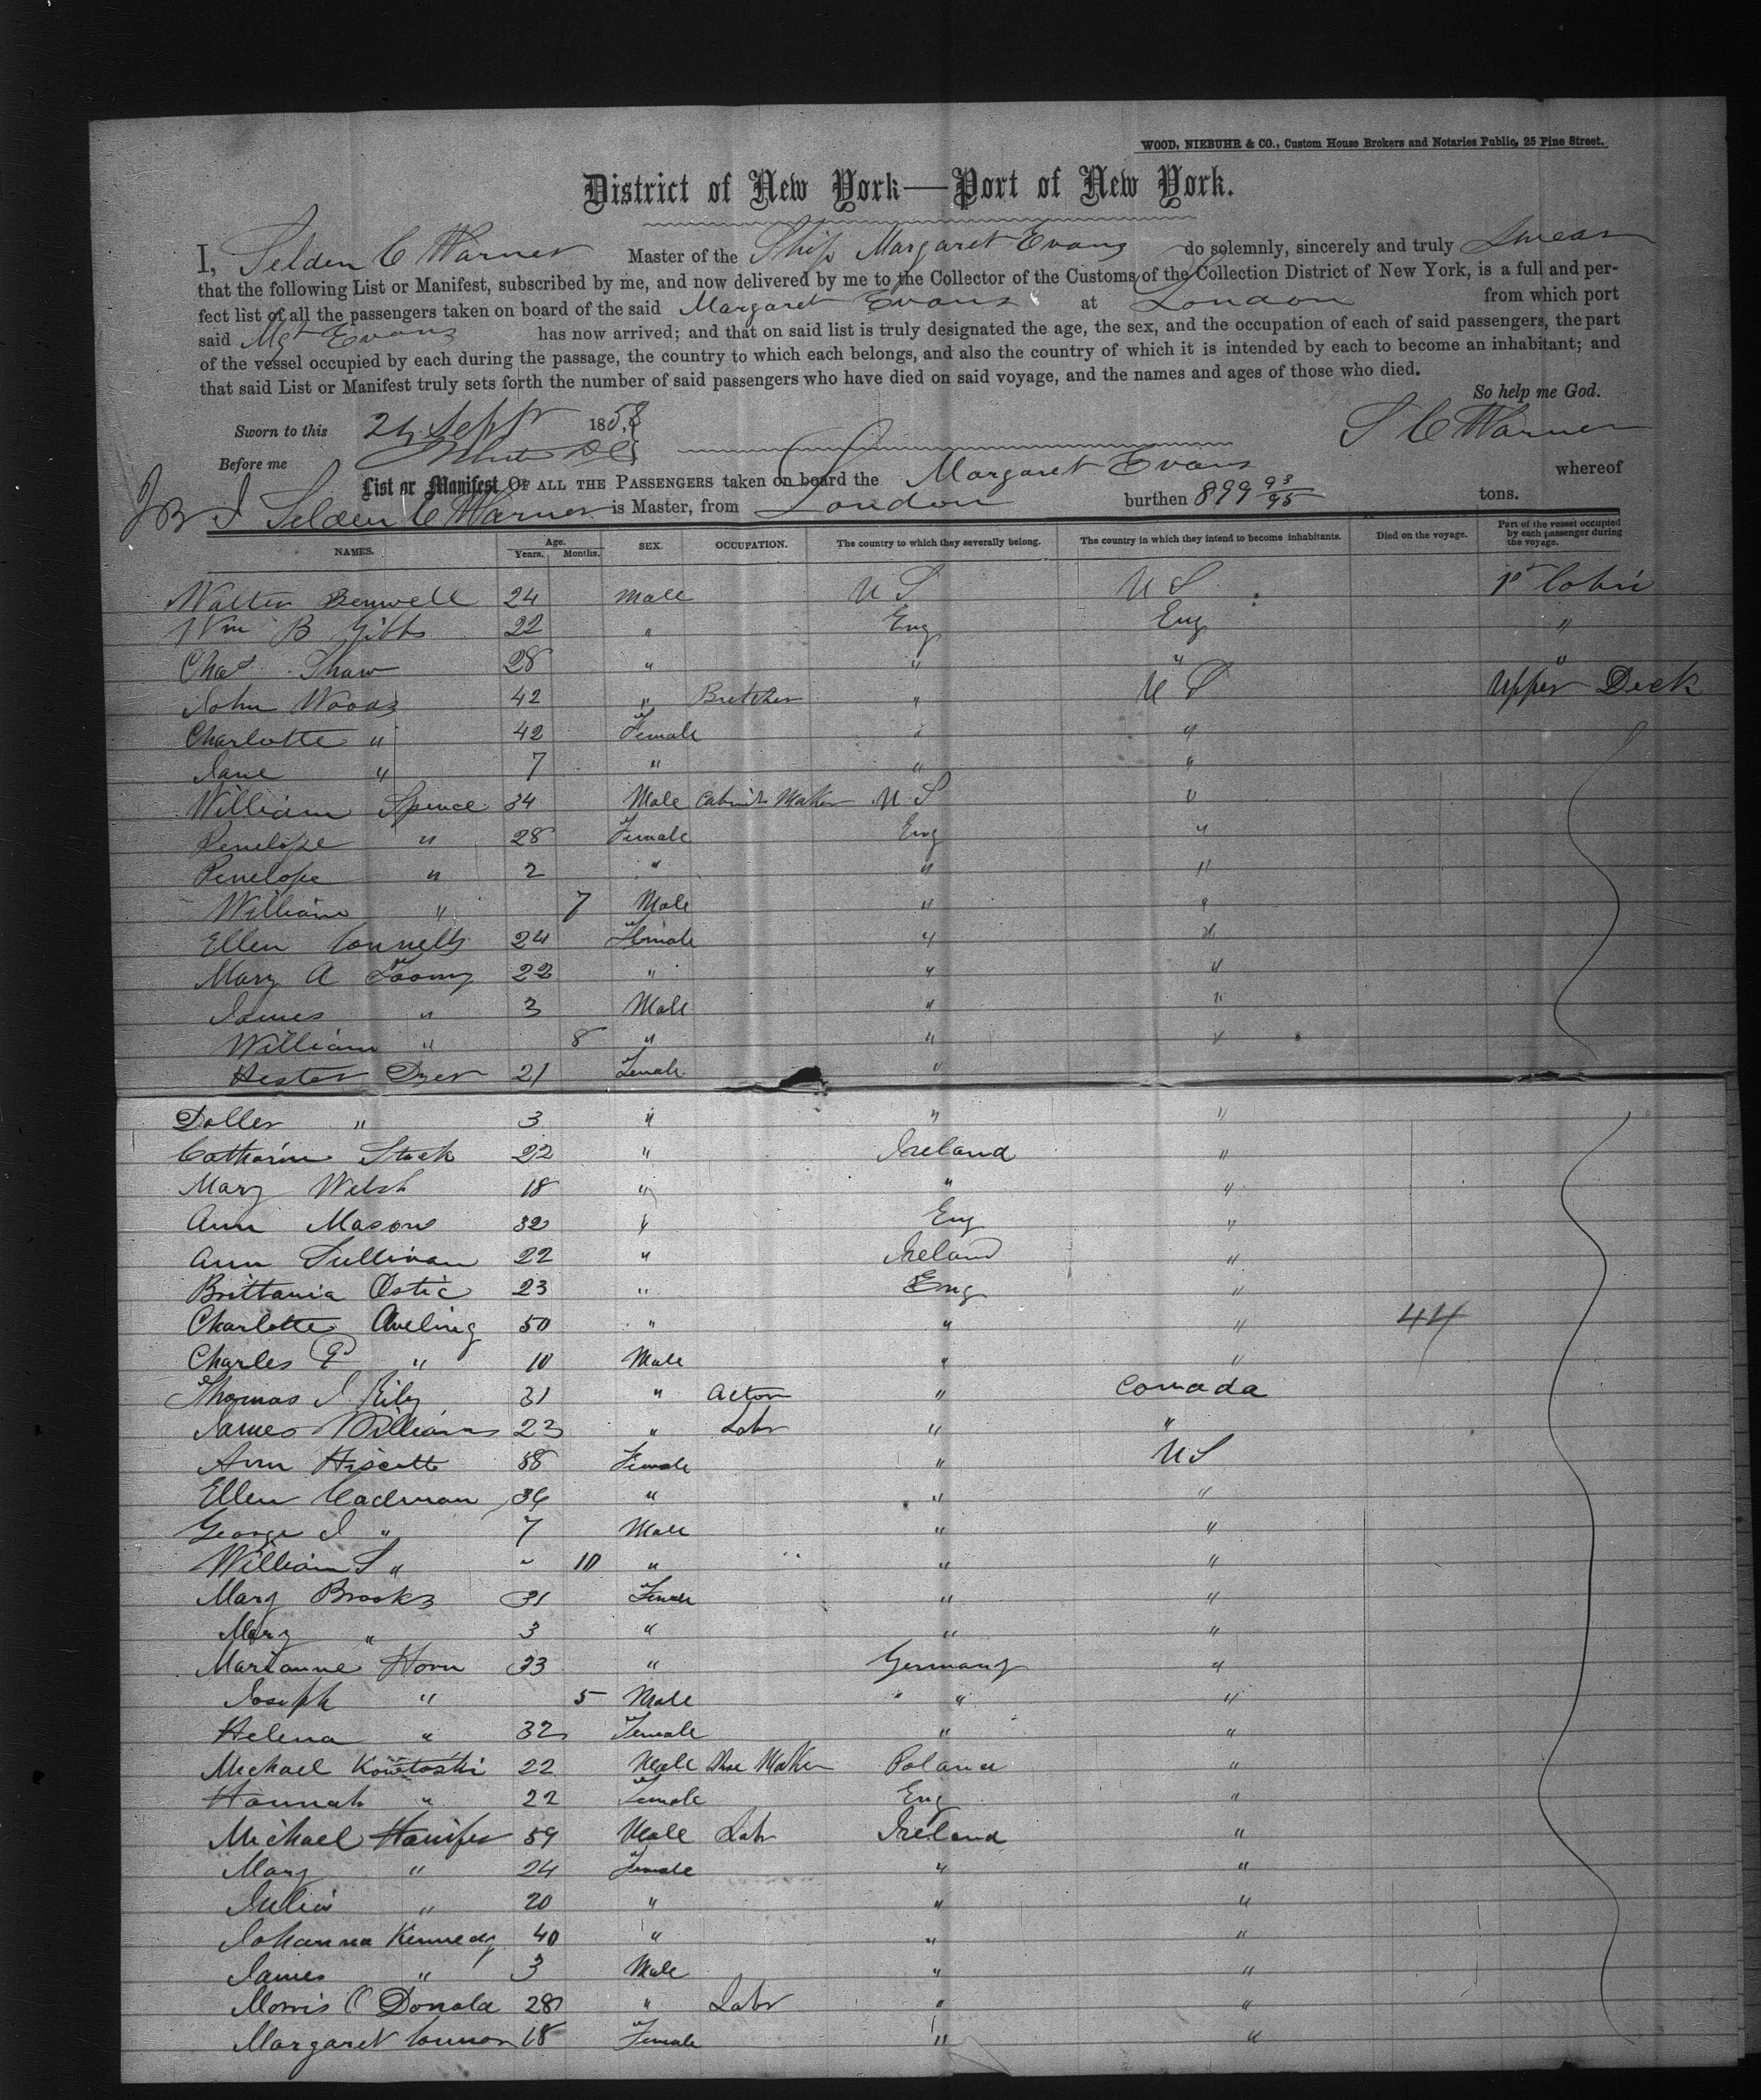 WOOD, NIEBUHR & CO., Custom House Brokers and Notaries Public, 25 Pine Street.
District of New York—Port of New York.
I, Selden C Warner Master of the Ship Margaret Evans do solemnly, sincerely and truly Swear
that the following List or Manifest, subscribed by me, and now delivered by me to the Collector of the Customs of the Collection District of New York, is a full and per-
fect list of all the passengers taken on board of the said Margaret Evans at London from which port
said Mgt Evans has now arrived; and that on said list is truly designated the age, the sex, and the occupation of each of said passengers, the part
of the vessel occupied by each during the passage, the country to which each belongs, and also the country of which it is intended by each to become an inhabitant; and
that said List or Manifest truly sets forth the number of said passengers who have died on said voyage, and the names and ages of those who died.
So help me God.
Sworn to this Sept 1858 S C Warner
Before me
List or Manifest OF ALL THE PASSENGERS taken on board the Margaret Evans whereof
Selden C Warner is Master, from London burthen 899 93/95 tons.
NAMES. Age. Years. Months. SEX. OCCUPATION. The country to which they severally belong. The country in which they intend to become inhabitants. Died on the voyage. Part of the vessel occupied by each passenger during the voyage.
Walter Benwell 24 Male U S U S 1st Cabin
Wm B Gibbs 22 " Eng Eng "
Chas Shaw 28 " " " "
John Woods 42 " Butcher " U S Upper Deck
Charlotte " 42 Female " "
Jane " 7 " " "
William Spence 34 Male Cabinet Maker U S "
Penelope " 28 Female Eng "
Penelope " 2 " " "
William " 7 Male " "
Ellen Connelly 24 Female " "
Mary A Toomy 22 " " "
James " 3 Male " "
William " 8 " " "
Hester Dyer 21 Female "
Doller " 3 " " "
Catharine Stack 22 " Ireland "
Mary Welsh 18 " " "
Ann Mason 32 " Eng "
Ann Sullivan 22 " Ireland "
Brittania Ostic 23 " Eng "
Charlotte Aveling 50 " " " 44
Charles P " 10 Male " "
Thomas J Riley 31 " Actor " Canada
James Williams 23 " Labr " "
Ann Hiscott Female " U S
Ellen Cadman 36 " " "
George J " 7 Male " "
William S " " 10 " " "
Mary Brooks 31 Female " "
Mary " 3 " " "
Marianne Horn 33 " Germany "
Joseph " 5 Male " "
Helena " 32 Female " "
Michael 22 Male Shoe Maker Poland "
Hannah " 22 Female Eng "
Michael Hanifer 59 Male Labr Ireland "
Mary " 24 Female " "
Julia " 20 " " "
Johanna Kennedy 40 " " "
James " 3 Male " "
Morris O Donald 28 " Labr " "
Margaret Connor 18 Female " "